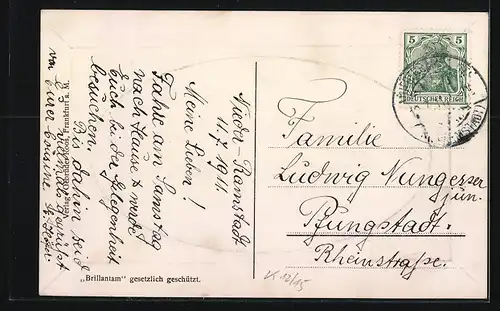 Nieder-Ramstadt
11.7.1911.
Meine Lieben!
Fahre am Samstag
nach Hause & werde
Euch bei der Gelegenheit
besuchen.
Bis dahin seid
gegrüsst
von Eurer Cousine
Verlag Frankfurt a. M.
"Brillantam" gesetzlich geschützt.
5 5
DEUTSCHES REICH
Familie
Ludwig Nungesser
jun.
Pfungstadt.
Rheinstraße.
K 12/15